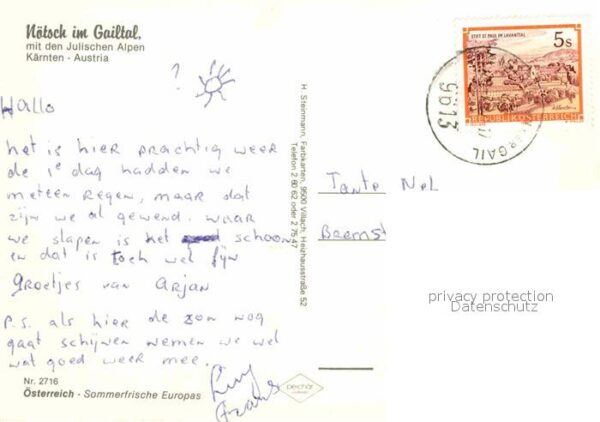 Nötsch im Gailtal,
mit den Julischen Alpen
Kärnten - Austria
?
Hallo
het is hier prachtig weer
de 1e dag hadden we
meteen regen, maar dat
zijn we al gewend. waar
we slapen is het schoon
en dat is toch wel fijn
groetjes van Arjan
p.s. als hier de zon nog
gaat schijnen nemen we wel
wat goed weer mee.
Nr. 2716
Österreich - Sommerfrische Europas
H. Steinmann, Farbkarten, 9500 Villach, Heizhausstraße 52
Telefon 2 80 62 oder 2 75 47
STIFT ST. PAUL IM LAVANTTAL
5s
REPUBLIK ÖSTERREICH
9613
GAIL
Tante Nel
Bremst
privacy protection
Datenschutz